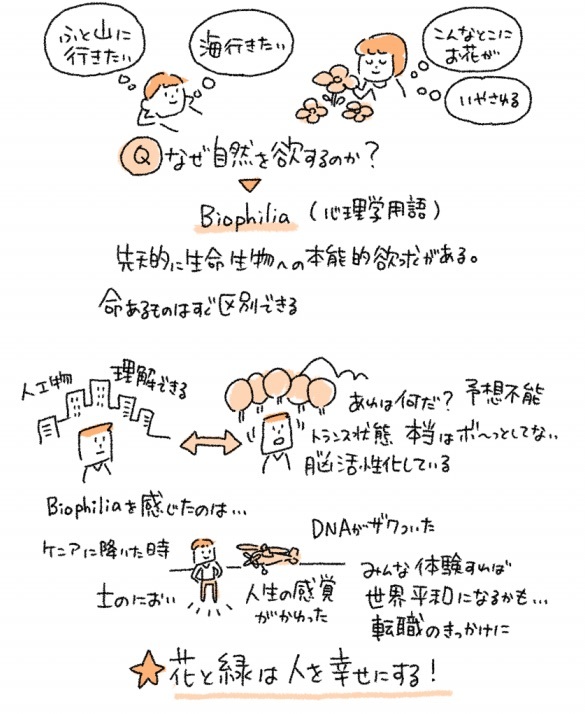 ふと山に
行きたい
海行きたい
こんなとこに
お花が
いやされる
Q なぜ自然を欲するのか？
Biophilia (心理学用語)
先天的に生命生物への本能的欲求がある。
命あるものはすぐ区別できる
人工物
理解できる
あれは何だ？ 予想不能
トランス状態 本当はボ〜っとしてない
脳活性化している
Biophiliaを感じたのは…
ケニアに降りた時
土のにおい
人生の感覚
がかわった
DNAがザワついた
みんな体験すれば
世界平和になるかも…
転職のきっかけに
花と緑は人を幸せにする！